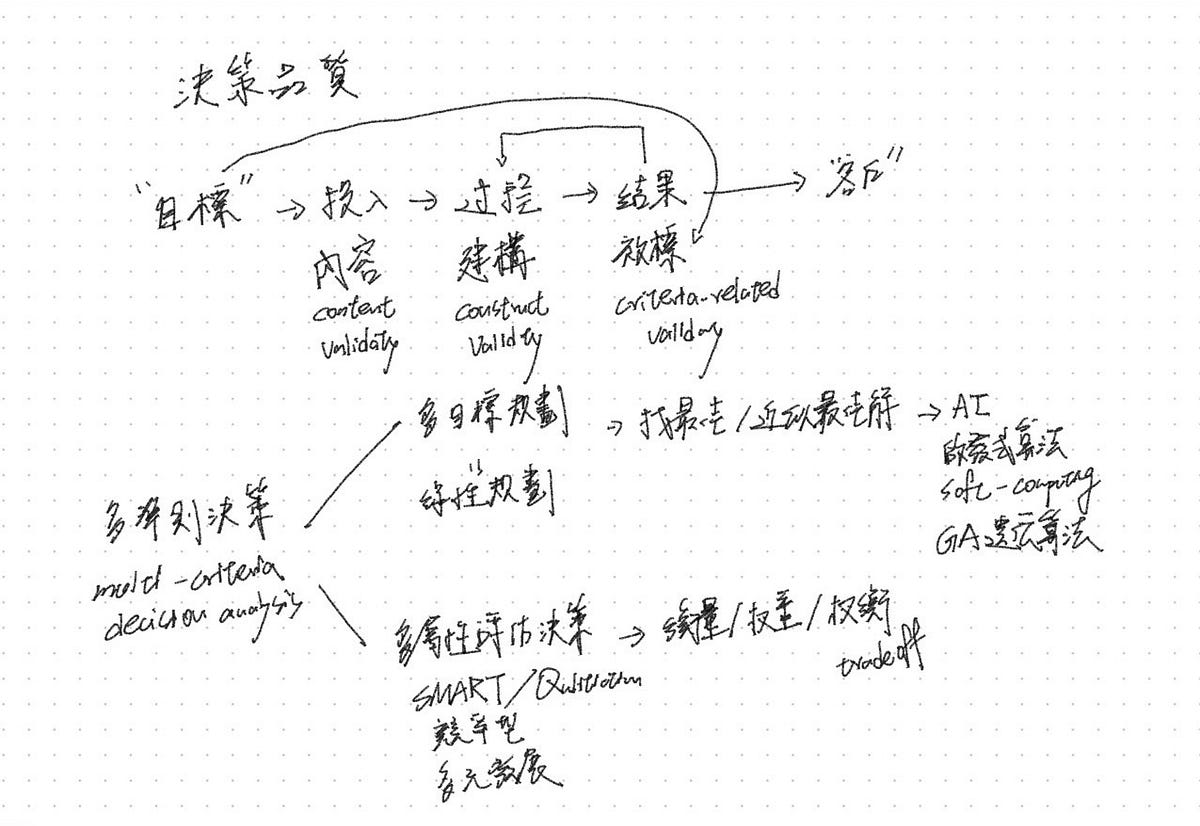 決策品質
"目標" → 投入 → 过程 → 結果 → "客戶"
內容 建構 效標
content validity
construct validity
criteria-related validity
多準則決策
multi-criteria
decision analysis
多目標規劃 → 找最佳/近似最佳解 → AI
線性規劃
啟發式算法
soft-computing
GA遺传算法
多屬性評估決策 → 衡量/权重/权衡
tradeoff
SMART/
競爭型
多元發展